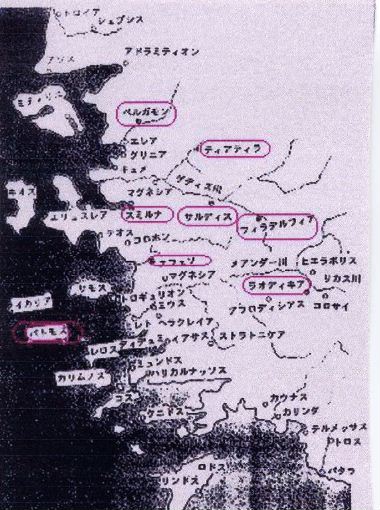 トロイア
シュプシス
アドラミティオン
アソス
ミティリニ
ペルガモン
エレア
グリニア
キュメ
ティアティラ
ゲディズ川
マグネシア
キオス
エリュスレア
スミルナ
サルディス
フィラデルフィア
テオス
コロホン
エフェソ
メアンダー川
ヒエラポリス
マグネシア
リカス川
サモス
ラオディキア
イカリア
アフロディシアス
コロサイ
ミウス
パトモス
ヘラクレイア
レロス
ストラトニケア
カリムノス
ミュンドス
ハリカルナッソス
コス
クニドス
カウナス
カリンダ
テルメッサス
トロス
ロドス
パタラ
リンドス